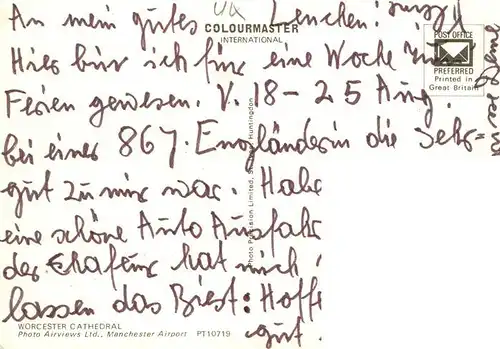 An mein gutes Lenchen!
COLOURMASTER
INTERNATIONAL
POST OFFICE
PREFERRED
Printed in
Great Britain
Hier bin ich für eine Woche
Ferien gewesen. V. 18 - 25 Aug.
bei einer 86 J. Engländerin die sehr
gut zu mir war. Habe
eine schöne Auto Ausfahrt
hat mich
lassen das Biest: Hoffe
gut.
Photo Precision Limited, St. Ives, Huntingdon
WORCESTER CATHEDRAL
Photo Airviews Ltd., Manchester Airport PT10719